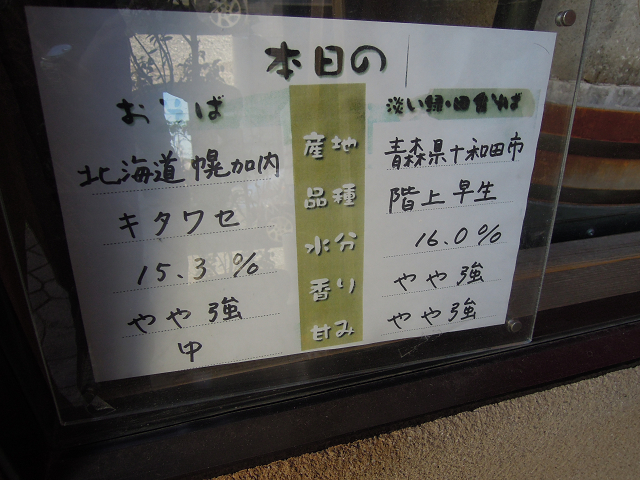 本日の
おそば 淡い緑・田舎そば
北海道 幌加内 産地 青森県十和田市
キタワセ 品種 階上早生
15.3% 水分 16.0%
やや強 香り やや強
中 甘み やや強